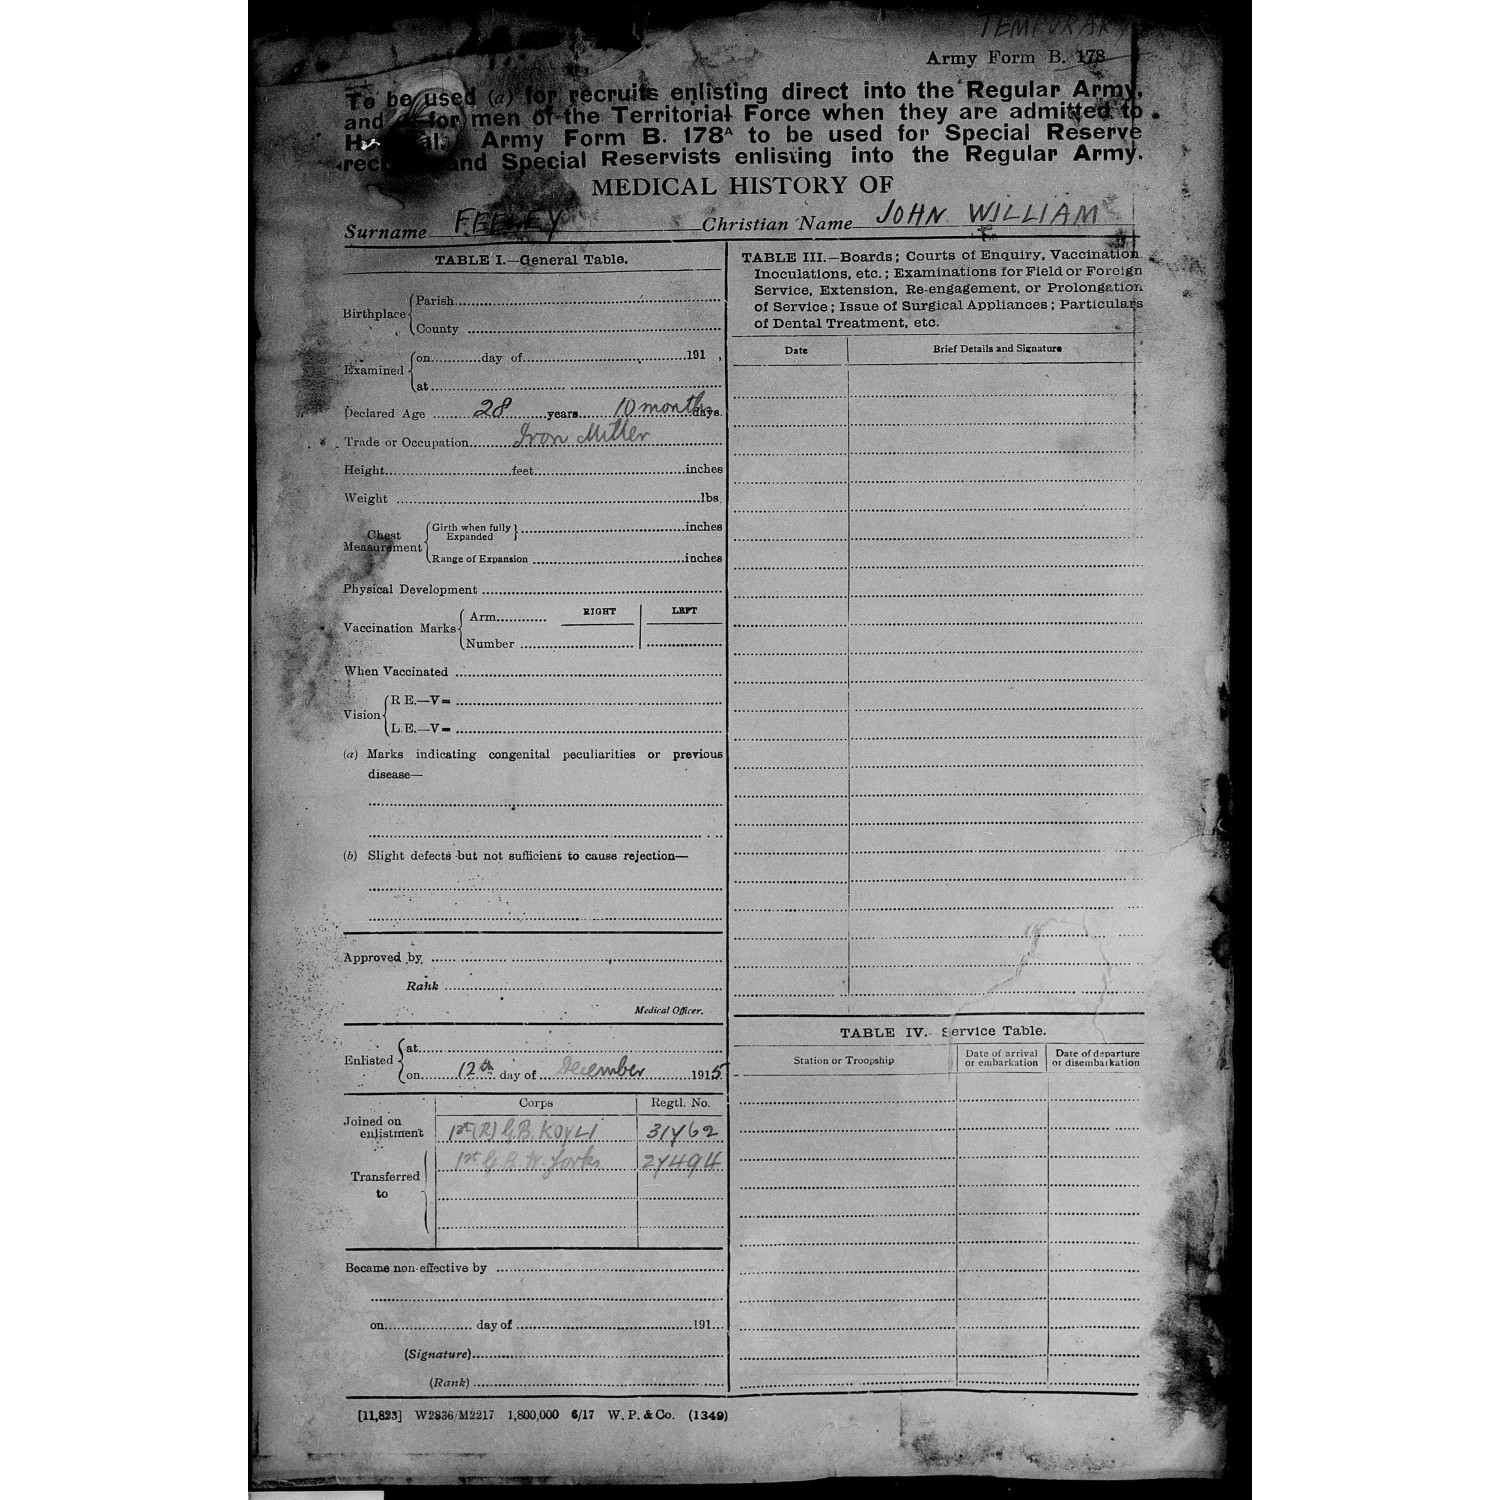 TEMPORARY
Army Form B. 178
To be used (a) for recruits enlisting direct into the Regular Army,
and for men of the Territorial Force when they are admitted to
Army Form B. 178A to be used for Special Reserve
and Special Reservists enlisting into the Regular Army.
MEDICAL HISTORY OF
Surname FEELEY Christian Name JOHN WILLIAM
TABLE I.—General Table.
Birthplace
Parish
County
Examined
on day of 191
at
Declared Age 28 years 10 months days.
Trade or Occupation Iron Miller
Height feet inches
Weight lbs.
Chest Measurement
Girth when fully Expanded inches
Range of Expansion inches
Physical Development
RIGHT LEFT
Vaccination Marks
Arm
Number
When Vaccinated
Vision
R.E.—V=
L.E.—V=
(a) Marks indicating congenital peculiarities or previous
disease—
(b) Slight defects but not sufficient to cause rejection—
Approved by
Rank
Medical Officer.
Enlisted
at
on 12th day of December 1915
Corps Regtl. No.
Joined on enlistment 1st (R) G.B. KOYLI 31762
Transferred to 1st G.B. W. Yorks 27494
Became non-effective by
on day of 191
(Signature)
(Rank)
[11,823] W2836/M2217 1,800,000 6/17 W. P. & Co. (1349)
TABLE III.—Boards; Courts of Enquiry, Vaccination
Inoculations, etc.; Examinations for Field or Foreign
Service, Extension, Re-engagement, or Prolongation
of Service; Issue of Surgical Appliances; Particulars
of Dental Treatment, etc.
Date Brief Details and Signature
TABLE IV. Service Table.
Station or Troopship Date of arrival or embarkation Date of departure or disembarkation